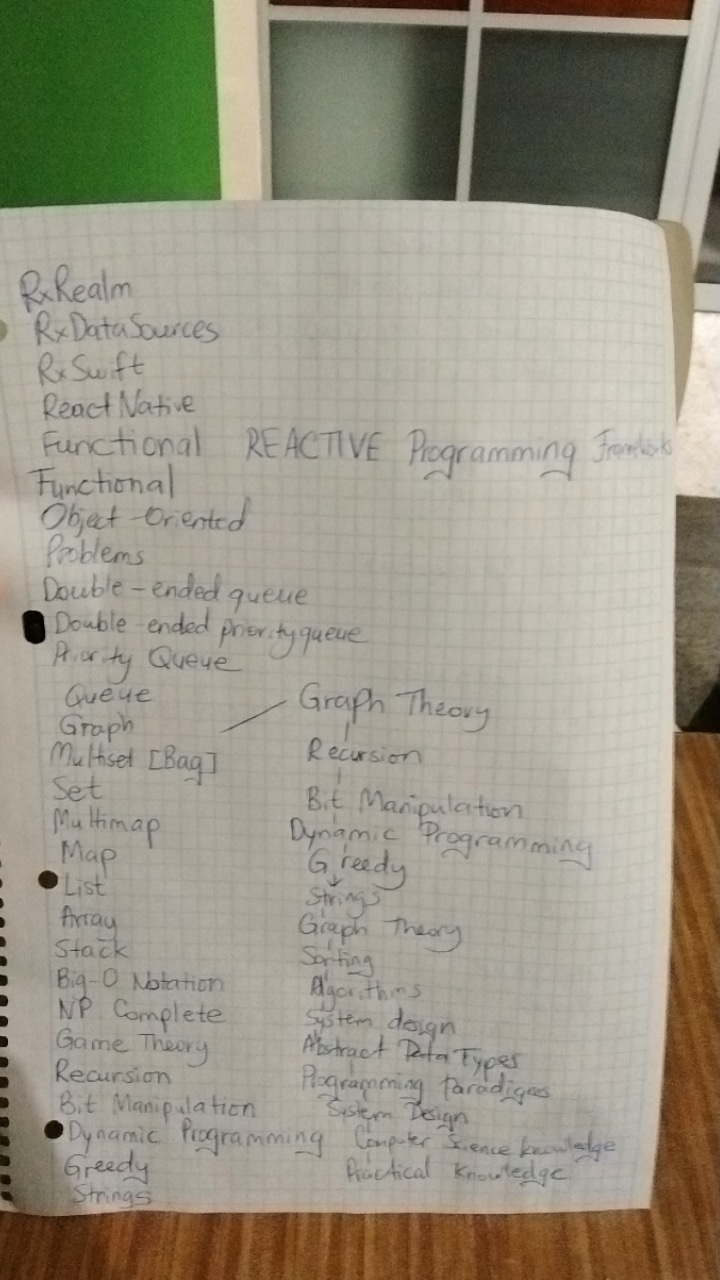 RxRealm
RxDataSources
RxSwift
React Native
Functional REACTIVE Programming Frameworks
Functional
Object-Oriented
Problems
Double-ended queue
Double-ended priority queue
Priority Queue
Queue
Graph
Multiset [Bag]
Set
Multimap
Map
List
Array
Stack
Big-O Notation
NP Complete
Game Theory
Recursion
Bit Manipulation
Dynamic Programming
Greedy
Strings
Graph Theory
Recursion
Bit Manipulation
Dynamic Programming
Greedy
Strings
Graph Theory
Sorting
Algorithms
System design
Abstract Data Types
Programming Paradigms
System Design
Computer Science knowledge
Practical Knowledge